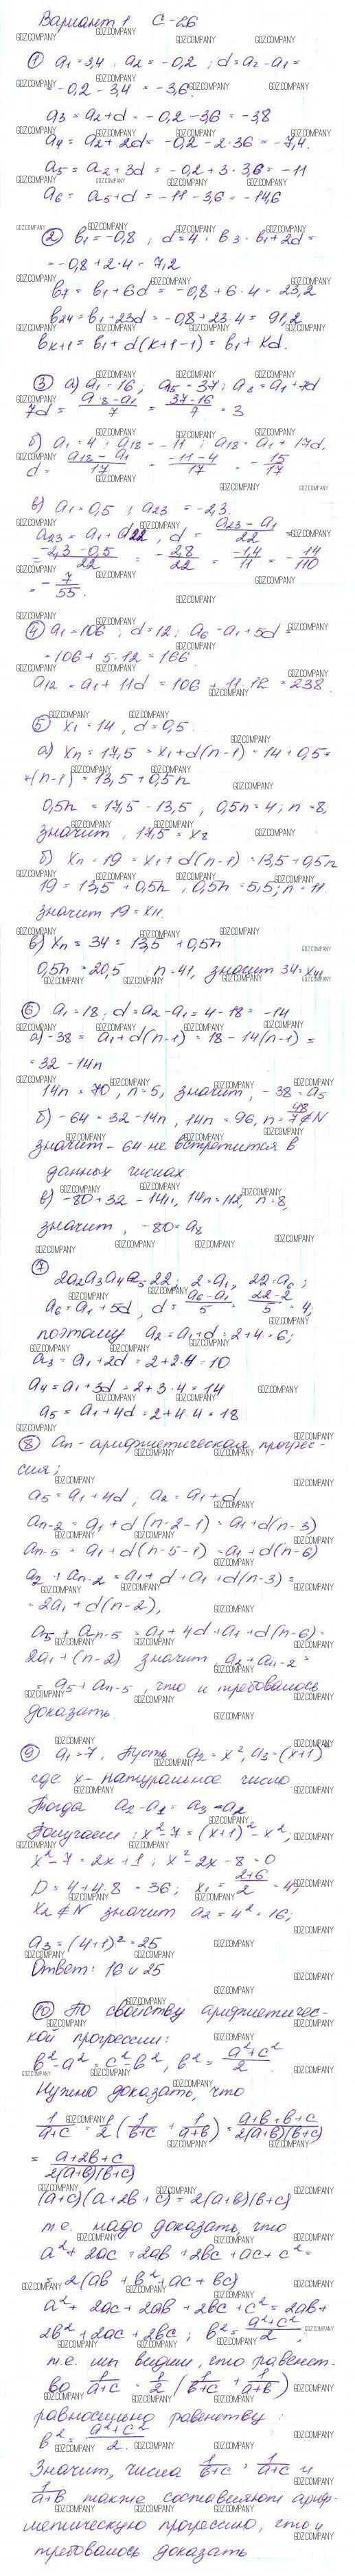 Вариант 1 С-26
① a₁ = 3,4 ; a₂ = -0,2 ; d = a₂ - a₁ =
= -0,2 - 3,4 = -3,6.
a₃ = a₂ + d = -0,2 - 3,6 = -3,8
a₄ = a₂ + 2d = -0,2 - 2·3,6 = -7,4.
a₅ = a₂ + 3d = -0,2 + 3·3,6 = -11
a₆ = a₅ + d = -11 - 3,6 = -14,6
② в₁ = -0,8 ; d = 4 ; в₃ = в₁ + 2d =
= -0,8 + 2·4 = 7,2
в₇ = в₁ + 6d = -0,8 + 6·4 = 23,2
в₂₄ = в₁ + 23d = -0,8 + 23·4 = 91,2
вₖ₊₁ = в₁ + d(k+1-1) = в₁ + kd.
③ а) a₁ = 16 ; a₈ = 37 ; a₈ = a₁ + 7d
7d = (a₈ - a₁)/7 = (37-16)/7 = 3
б) a₁ = 4 ; a₁₈ = -11 ; a₁₈ = a₁ + 17d.
d = (a₁₈ - a₁)/17 = (-11-4)/17 = -15/17
в) a₁ = 0,5 ; a₂₃ = -2,3.
a₂₃ = a₁ + d22 , d = (a₂₃ - a₁)/22 =
= (-2,3-0,5)/22 = -2,8/22 = -1,4/11 = -14/110
= -7/55.
④ a₁ = 106 ; d = 12 ; a₆ = a₁ + 5d =
= 106 + 5·12 = 166.
a₁₂ = a₁ + 11d = 106 + 11·12 = 238.
⑤ x₁ = 14 , d = 0,5.
а) xₙ = 17,5 = x₁ + d(n-1) = 14 + 0,5·
·(n-1) = 13,5 + 0,5n
0,5n = 17,5 - 13,5 , 0,5n = 4; n = 8,
значит , 17,5 = x₈
б) xₙ = 19 = x₁ + d(n-1) = 13,5 + 0,5n
19 = 13,5 + 0,5n , 0,5n = 5,5; n = 11
значит 19 = x₁₁.
в) xₙ = 34 = 13,5 + 0,5n
0,5n = 20,5 n = 41, значит 34 = x₄₁
⑥ a₁ = 18 ; d = a₂ - a₁ = 4 - 18 = -14
а) -38 = a₁ + d(n-1) = 18 - 14(n-1) =
= 32 - 14n
14n = 70 , n = 5, значит , -38 = a₅
б) -64 = 32 - 14n , 14n = 96, n = 48/7 ∉ N
значит -64 не встретится в
данных числах.
в) -80 = 32 - 14n, 14n = 112, n = 8,
значит , -80 = a₈
⑦
2a₂a₃a₄a₅22; 2 = a₁, 22 = a₆ ;
a₆ = a₁ + 5d , d = (a₆ - a₁)/5 = (22-2)/5 = 4;
поэтому a₂ = a₁ + d = 2 + 4 = 6;
a₃ = a₁ + 2d = 2 + 2·4 = 10
a₄ = a₁ + 3d = 2 + 3·4 = 14
a₅ = a₁ + 4d = 2 + 4·4 = 18
⑧ aₙ - арифметическая прогрес-
сия;
a₅ = a₁ + 4d ; a₂ = a₁ + d
aₙ₋₂ = a₁ + d(n-2-1) = a₁ + d(n-3)
aₙ₋₅ = a₁ + d(n-5-1) = a₁ + d(n-6)
a₂ + aₙ₋₂ = a₁ + d + a₁ + d(n-3) =
= 2a₁ + d(n-2),
a₅ + aₙ₋₅ = a₁ + 4d + a₁ + d(n-6) =
2a₁ + (n-2) значит a₂ + aₙ₋₂ =
= a₅ + aₙ₋₅ , что и требовалось
доказать.
⑨ a₁ = 7 , Пусть a₂ = x², a₃ = (x+1)²
где x - натуральное число.
Тогда a₂ - a₁ = a₃ - a₂
Получаем ; x² - 7 = (x+1)² - x²,
x² - 7 = 2x + 1 ; x² - 2x - 8 = 0
D = 4 + 4·8 = 36; x₁ = (2+6)/2 = 4,
x₂ ∉ N значит a₂ = 4² = 16;
a₃ = (4+1)² = 25
Ответ: 16 и 25
⑩ По свойству арифметичес-
кой прогрессии:
в² - a² = c² - в² , в² = (a²+c²)/2
Нужно доказать, что
1/(a+c) = 1/2 (1/(в+c) + 1/(a+в)) = (a+в+в+c)/(2(a+в)(в+c))
= (a+2в+c)/(2(a+в)(в+c))
(a+c)(a+2в+c) = 2(a+в)(в+c)
т.е. надо доказать, что
a² + 2ac + 2aв + 2вc + ac + c² =
= 2(aв + в² + ac + вc)
a² + 2ac + 2aв + 2вc + c² = 2aв +
2в² + 2ac + 2вc ; в² = (a²+c²)/2 ,
т.е. мы видим, что равенст-
во 1/(a+c) = 1/2 (1/(в+c) + 1/(a+в))
равносильно равенству :
в² = (a²+c²)/2.
Значит, числа 1/(в+c) , 1/(a+c) и
1/(a+в) также составляют ариф-
метическую прогрессию, что и
требовалось доказать